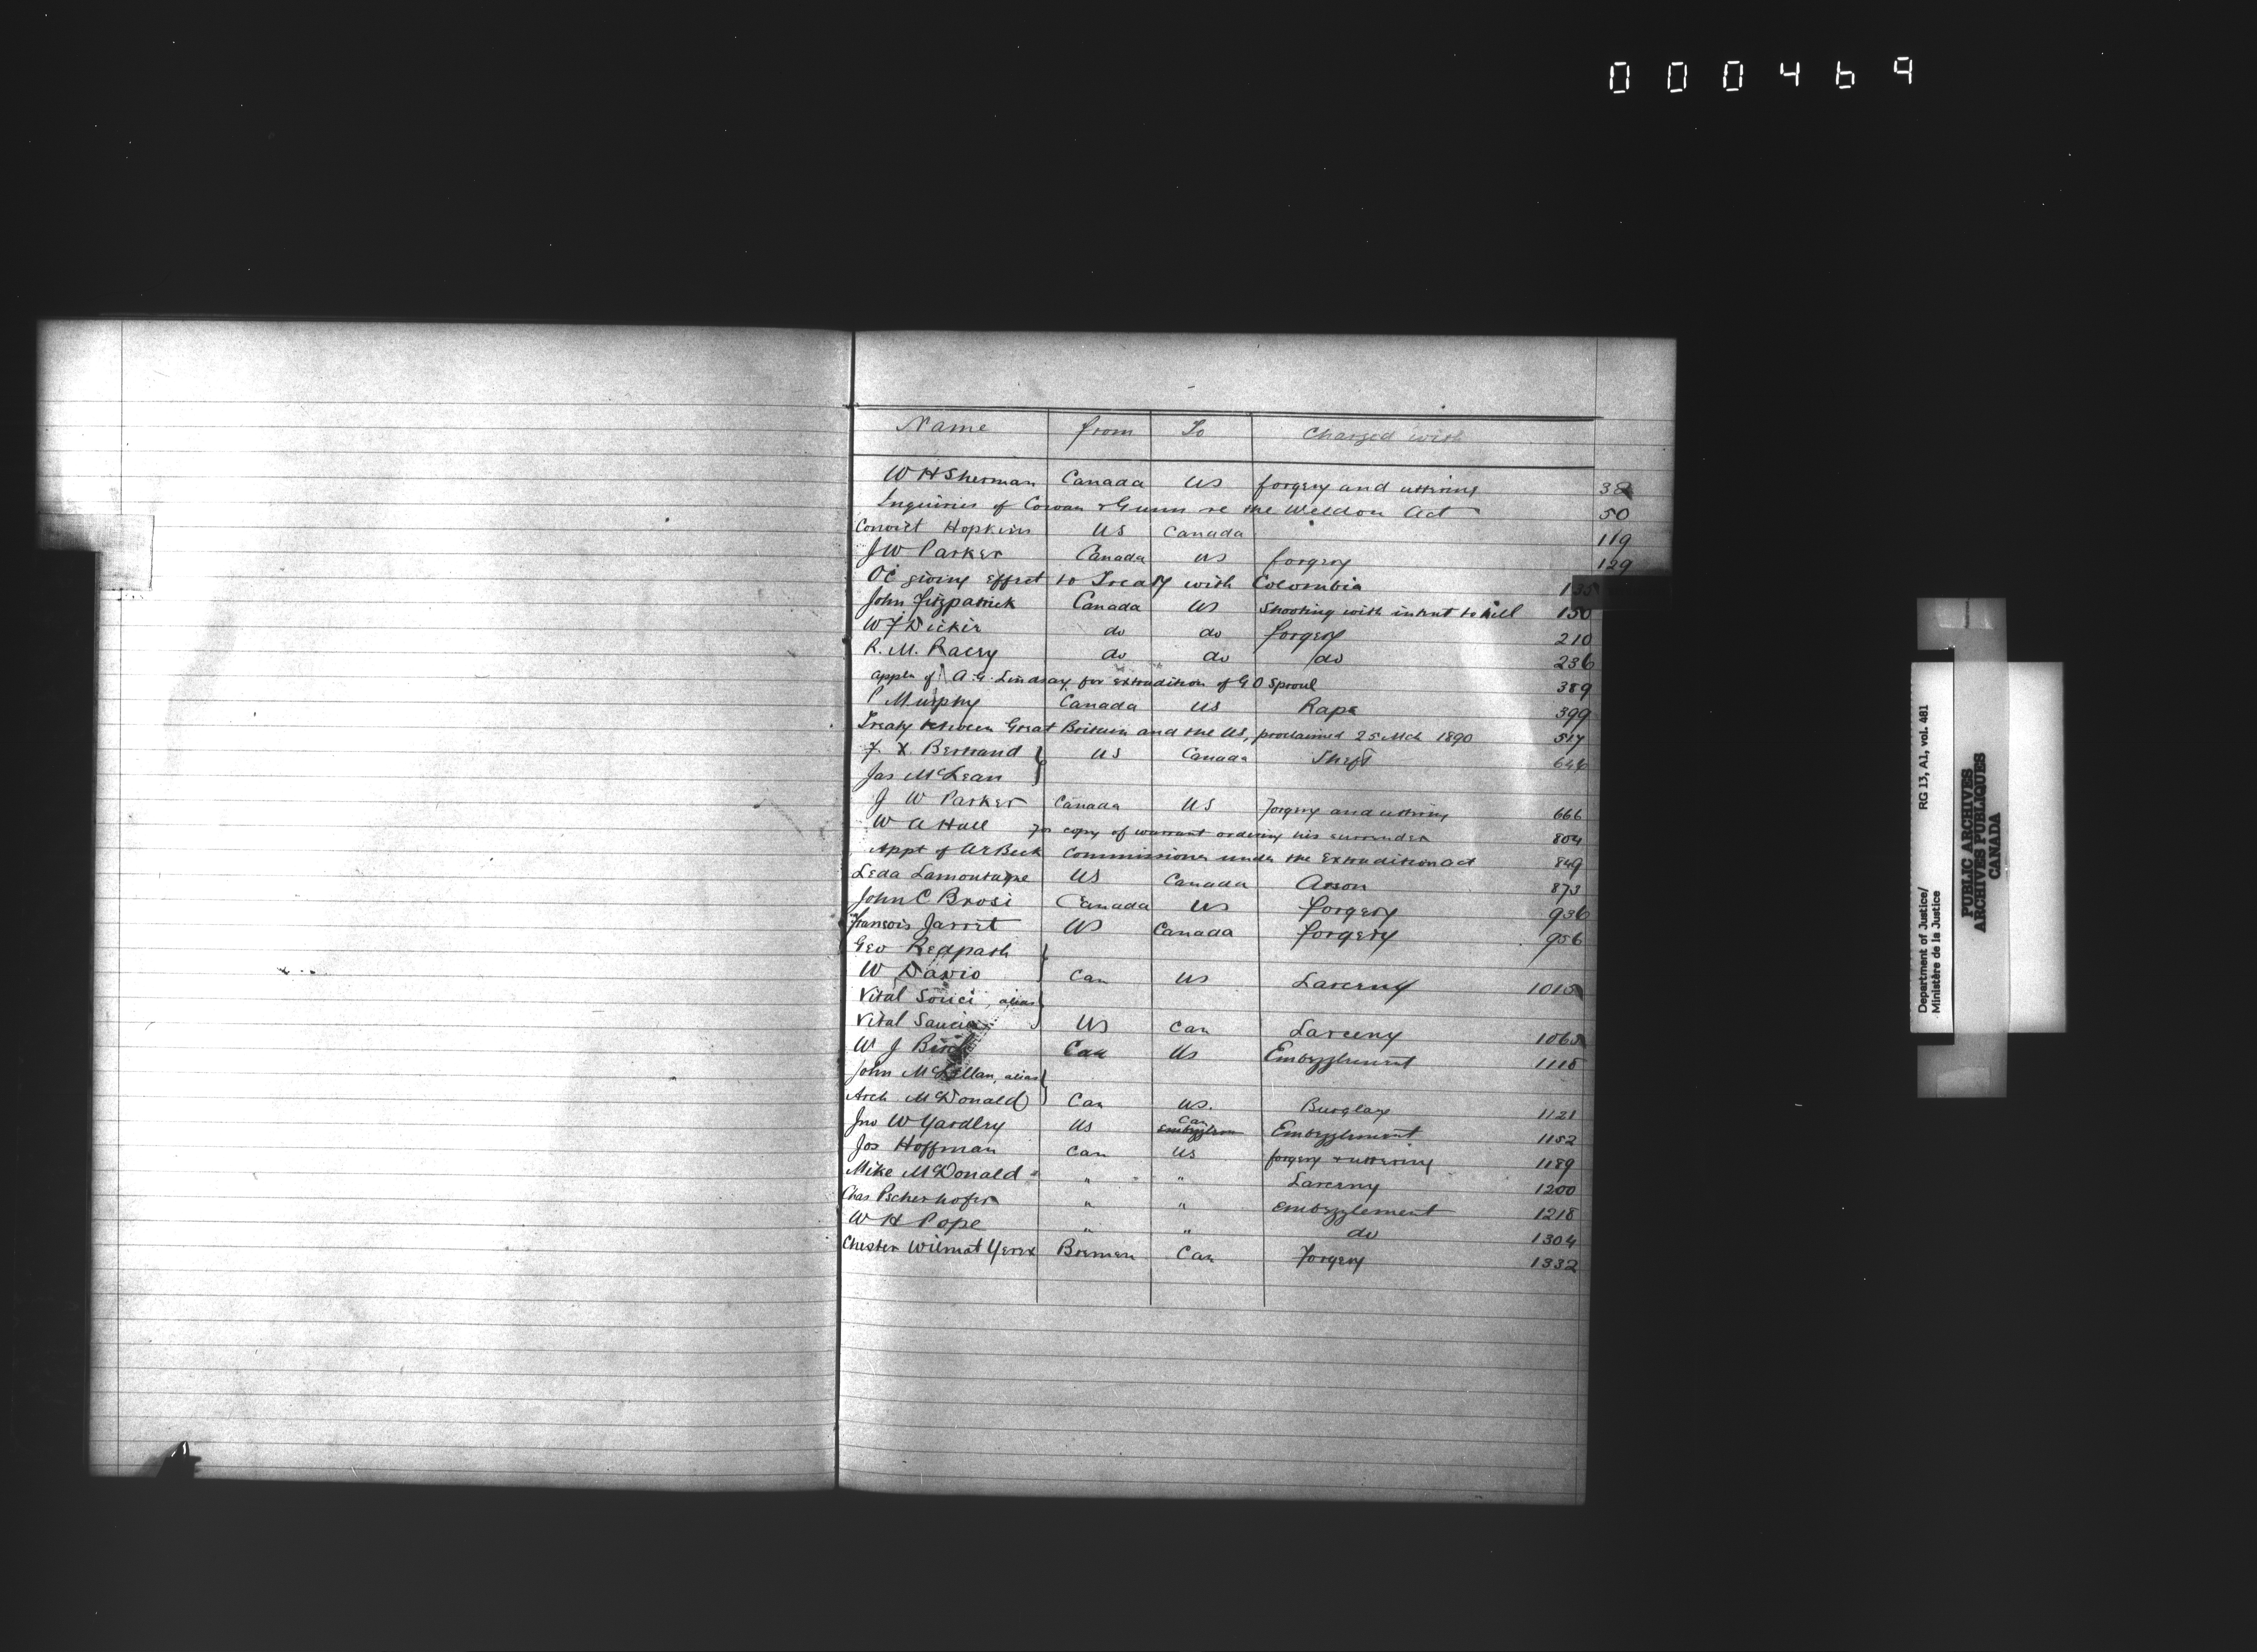 000469
Name from To Charged with
W H Sherman Canada US forgery and uttering 38
Inquiries of Cowan & Gunn re the Weldon Act 50
Convict Hopkins US Canada 119
J W Parker Canada US forgery 129
OC giving effect to Treaty with Colombia 135
John Fitzpatrick Canada US Shooting with intent to kill 150
W F Dickie do do forgery 210
R. M. Racey do do do 236
appln of A. G. Lindsay for extradition of G O Sproul 389
P Murphy Canada US Rape 399
Treaty between Great Britain and the US, proclaimed 25 Mch 1890 517
F. X. Bertrand } US Canada Theft 646
Jas McLean
J W Parker Canada US Forgery and uttering 666
W A Hall for copy of warrant ordering his surrender 804
Appt of A R Beck Commissioner under the Extradition Act 849
Leda Lamontagne US Canada Arson 873
John C Brosi Canada US forgery 936
Francois Jarret US Canada forgery 956
Geo Redpath }
W Davis Can US Larceny 1015
Vital Souci, alias }
Vital Saucia US Can Larceny 1065
W J Can US Embezzlement 1118
John McLellan, alias }
Arch McDonald Can US. Burglary 1121
Jno W Yardley US Can Embezzlement 1152
Jos Hoffman Can US forgery & uttering 1189
Mike McDonald " " " Larceny 1200
Chas Pscherhofer " " embezzlement 1218
W H Pope " " do 1304
Chester Wilmat Yerex Bremen Can Forgery 1332
Department of Justice/ RG 13, A1, vol. 481
Ministère de la Justice
PUBLIC ARCHIVES
ARCHIVES PUBLIQUES
CANADA